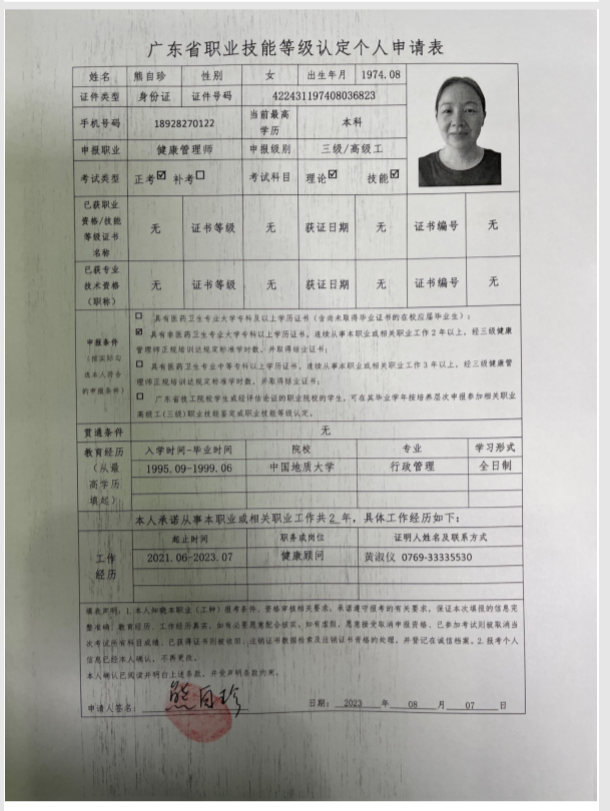 广东省职业技能等级认定个人申请表
姓名 熊自珍 性别 女 出生年月 1974.08
证件类型 身份证 证件号码 422431197408036823
手机号码 18928270122 当前最高学历 本科
申报职业 健康管理师 申报级别 三级/高级工
考试类型 正考☑ 补考☐ 考试科目 理论☑ 技能☑
已获职业资格/技能等级证书名称 无 证书等级 无 获证日期 无 证书编号 无
已获专业技术资格(职称) 无 证书等级 无 获证日期 无 证书编号 无
申报条件(按实际勾选本人符合的申报条件)
☐ 具有医药卫生专业大学专科及以上学历证书(含尚未取得毕业证书的在校应届毕业生);
☑ 具有非医药卫生专业大学专科以上学历证书,连续从事本职业或相关职业工作2年以上,经三级健康
管理师正规培训达规定标准学时数,并取得结业证书;
☐ 具有医药卫生专业中等专科以上学历证书,连续从事本职业或相关职业工作3年以上,经三级健康管
理师正规培训达规定标准学时数,并取得结业证书;
☐ 广东省技工院校学生或经评估论证的职业院校的学生,可在其毕业学年报培养层次申报参加相关职业
高级工(三级)职业技能鉴定或职业技能等级认定。
贯通条件 无
教育经历(从最高学历填起) 入学时间-毕业时间 院校 专业 学习形式
1995.09-1999.06 中国地质大学 行政管理 全日制
本人承诺从事本职业或相关职业工作共2年,具体工作经历如下:
工作经历 起止时间 职务或岗位 证明人姓名及联系方式
2021.06-2023.07 健康顾问 黄淑仪 0769-33335530
填表声明:1.本人知晓本职业(工种)报考条件、资格审核相关要求,承诺遵守报考的有关要求,保证本次填报的信息完
整准确,教育经历、工作经历真实,如有必要愿意配合核实。如有虚假,愿意接受取消申报资格、已参加考试则被取消当
次考试所有科目成绩、已获得证书则被收回、注销证书数据检索及注销证书资格的处理,并登记在诚信档案。2.报考个人
信息已经本人确认,不再更改。
本人确认已阅读并明白上述条款,并受声明条款约束。
申请人签名: 熊自珍 日期: 2023 年 08 月 07 日